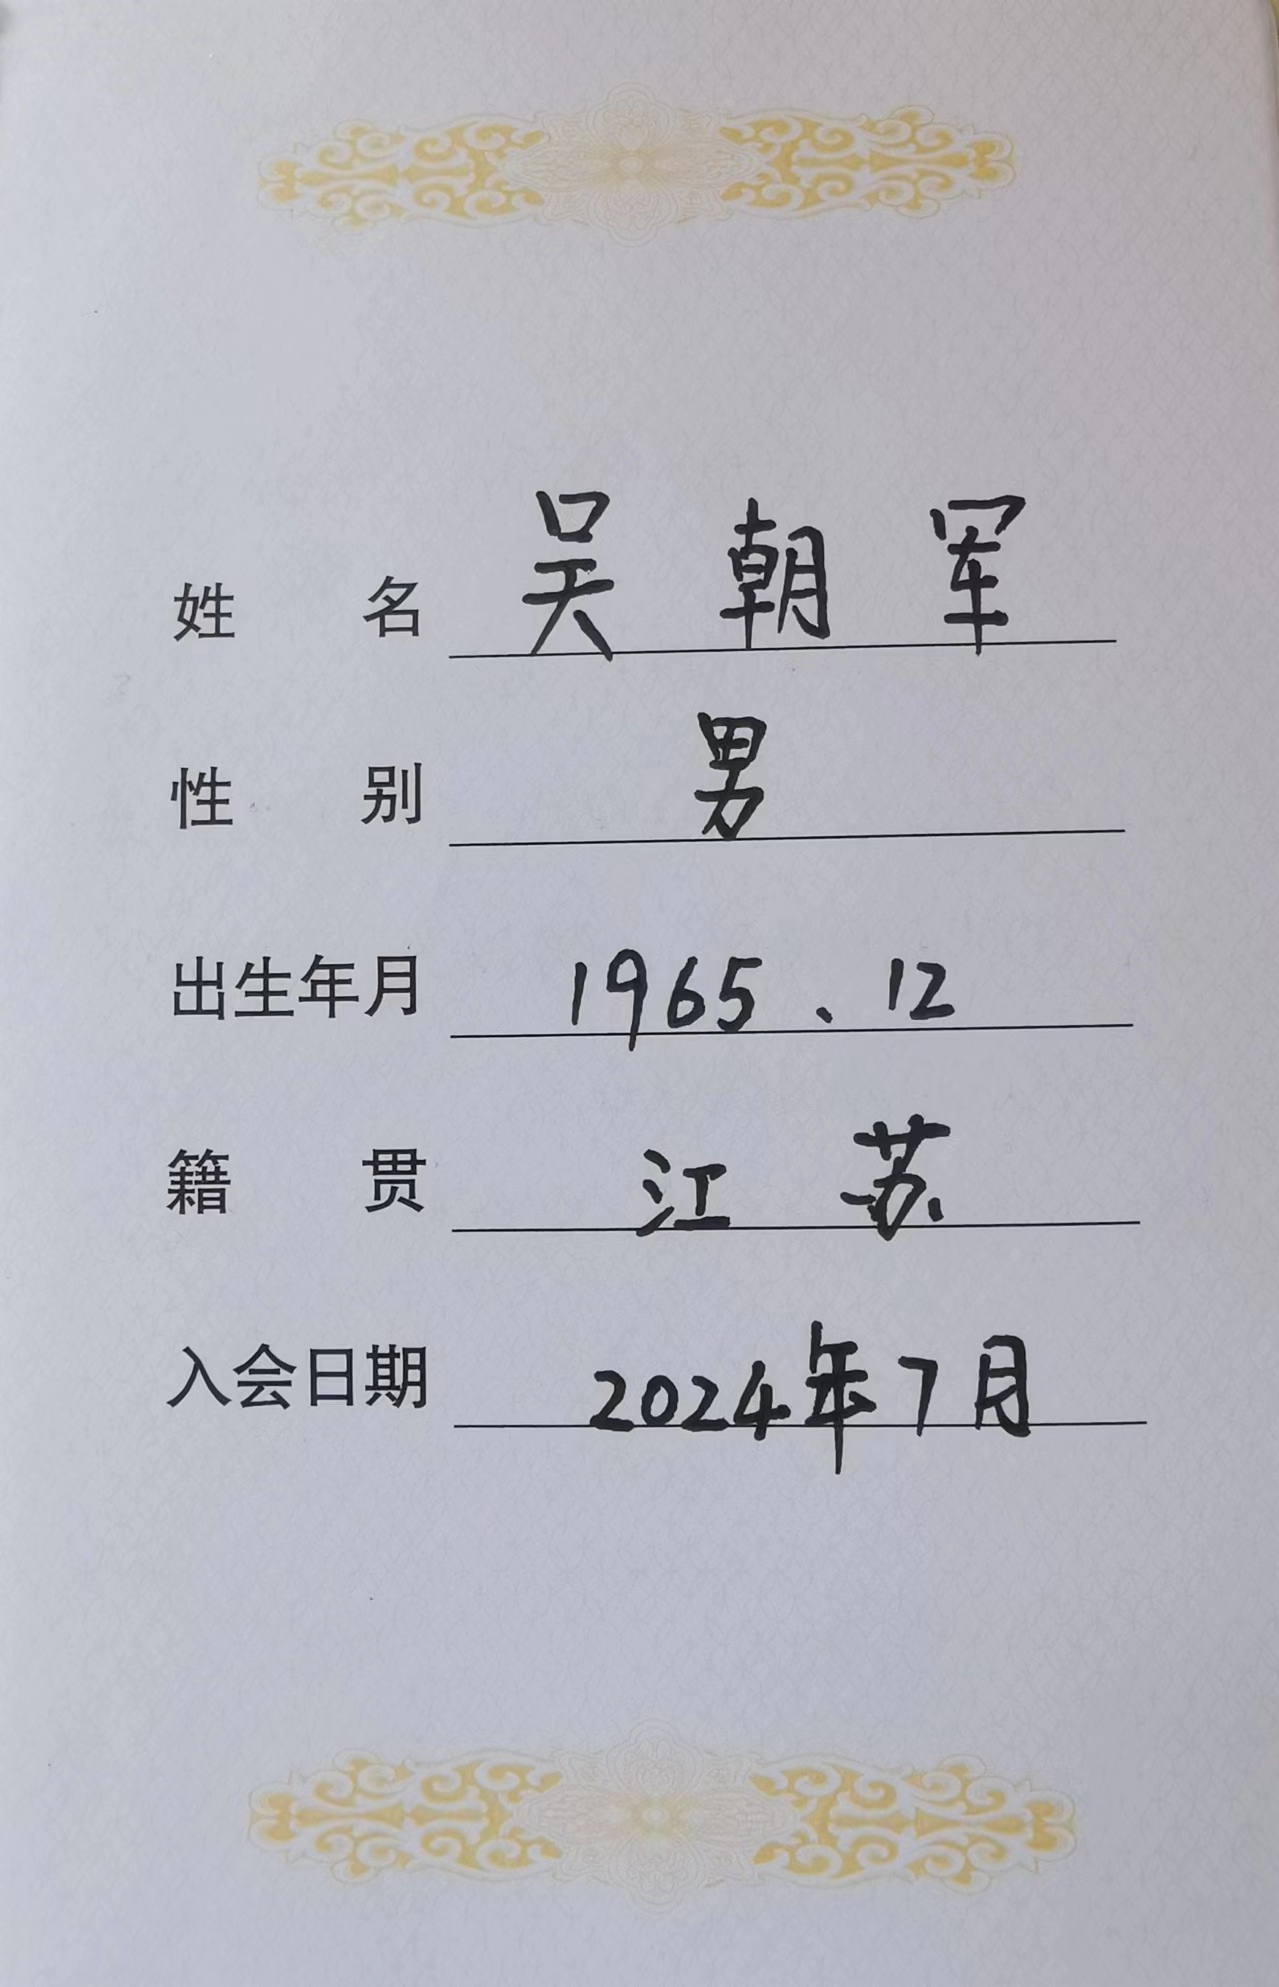 姓名 吴朝军
性别 男
出生年月 1965.12
籍贯 江苏
入会日期 2024年7月